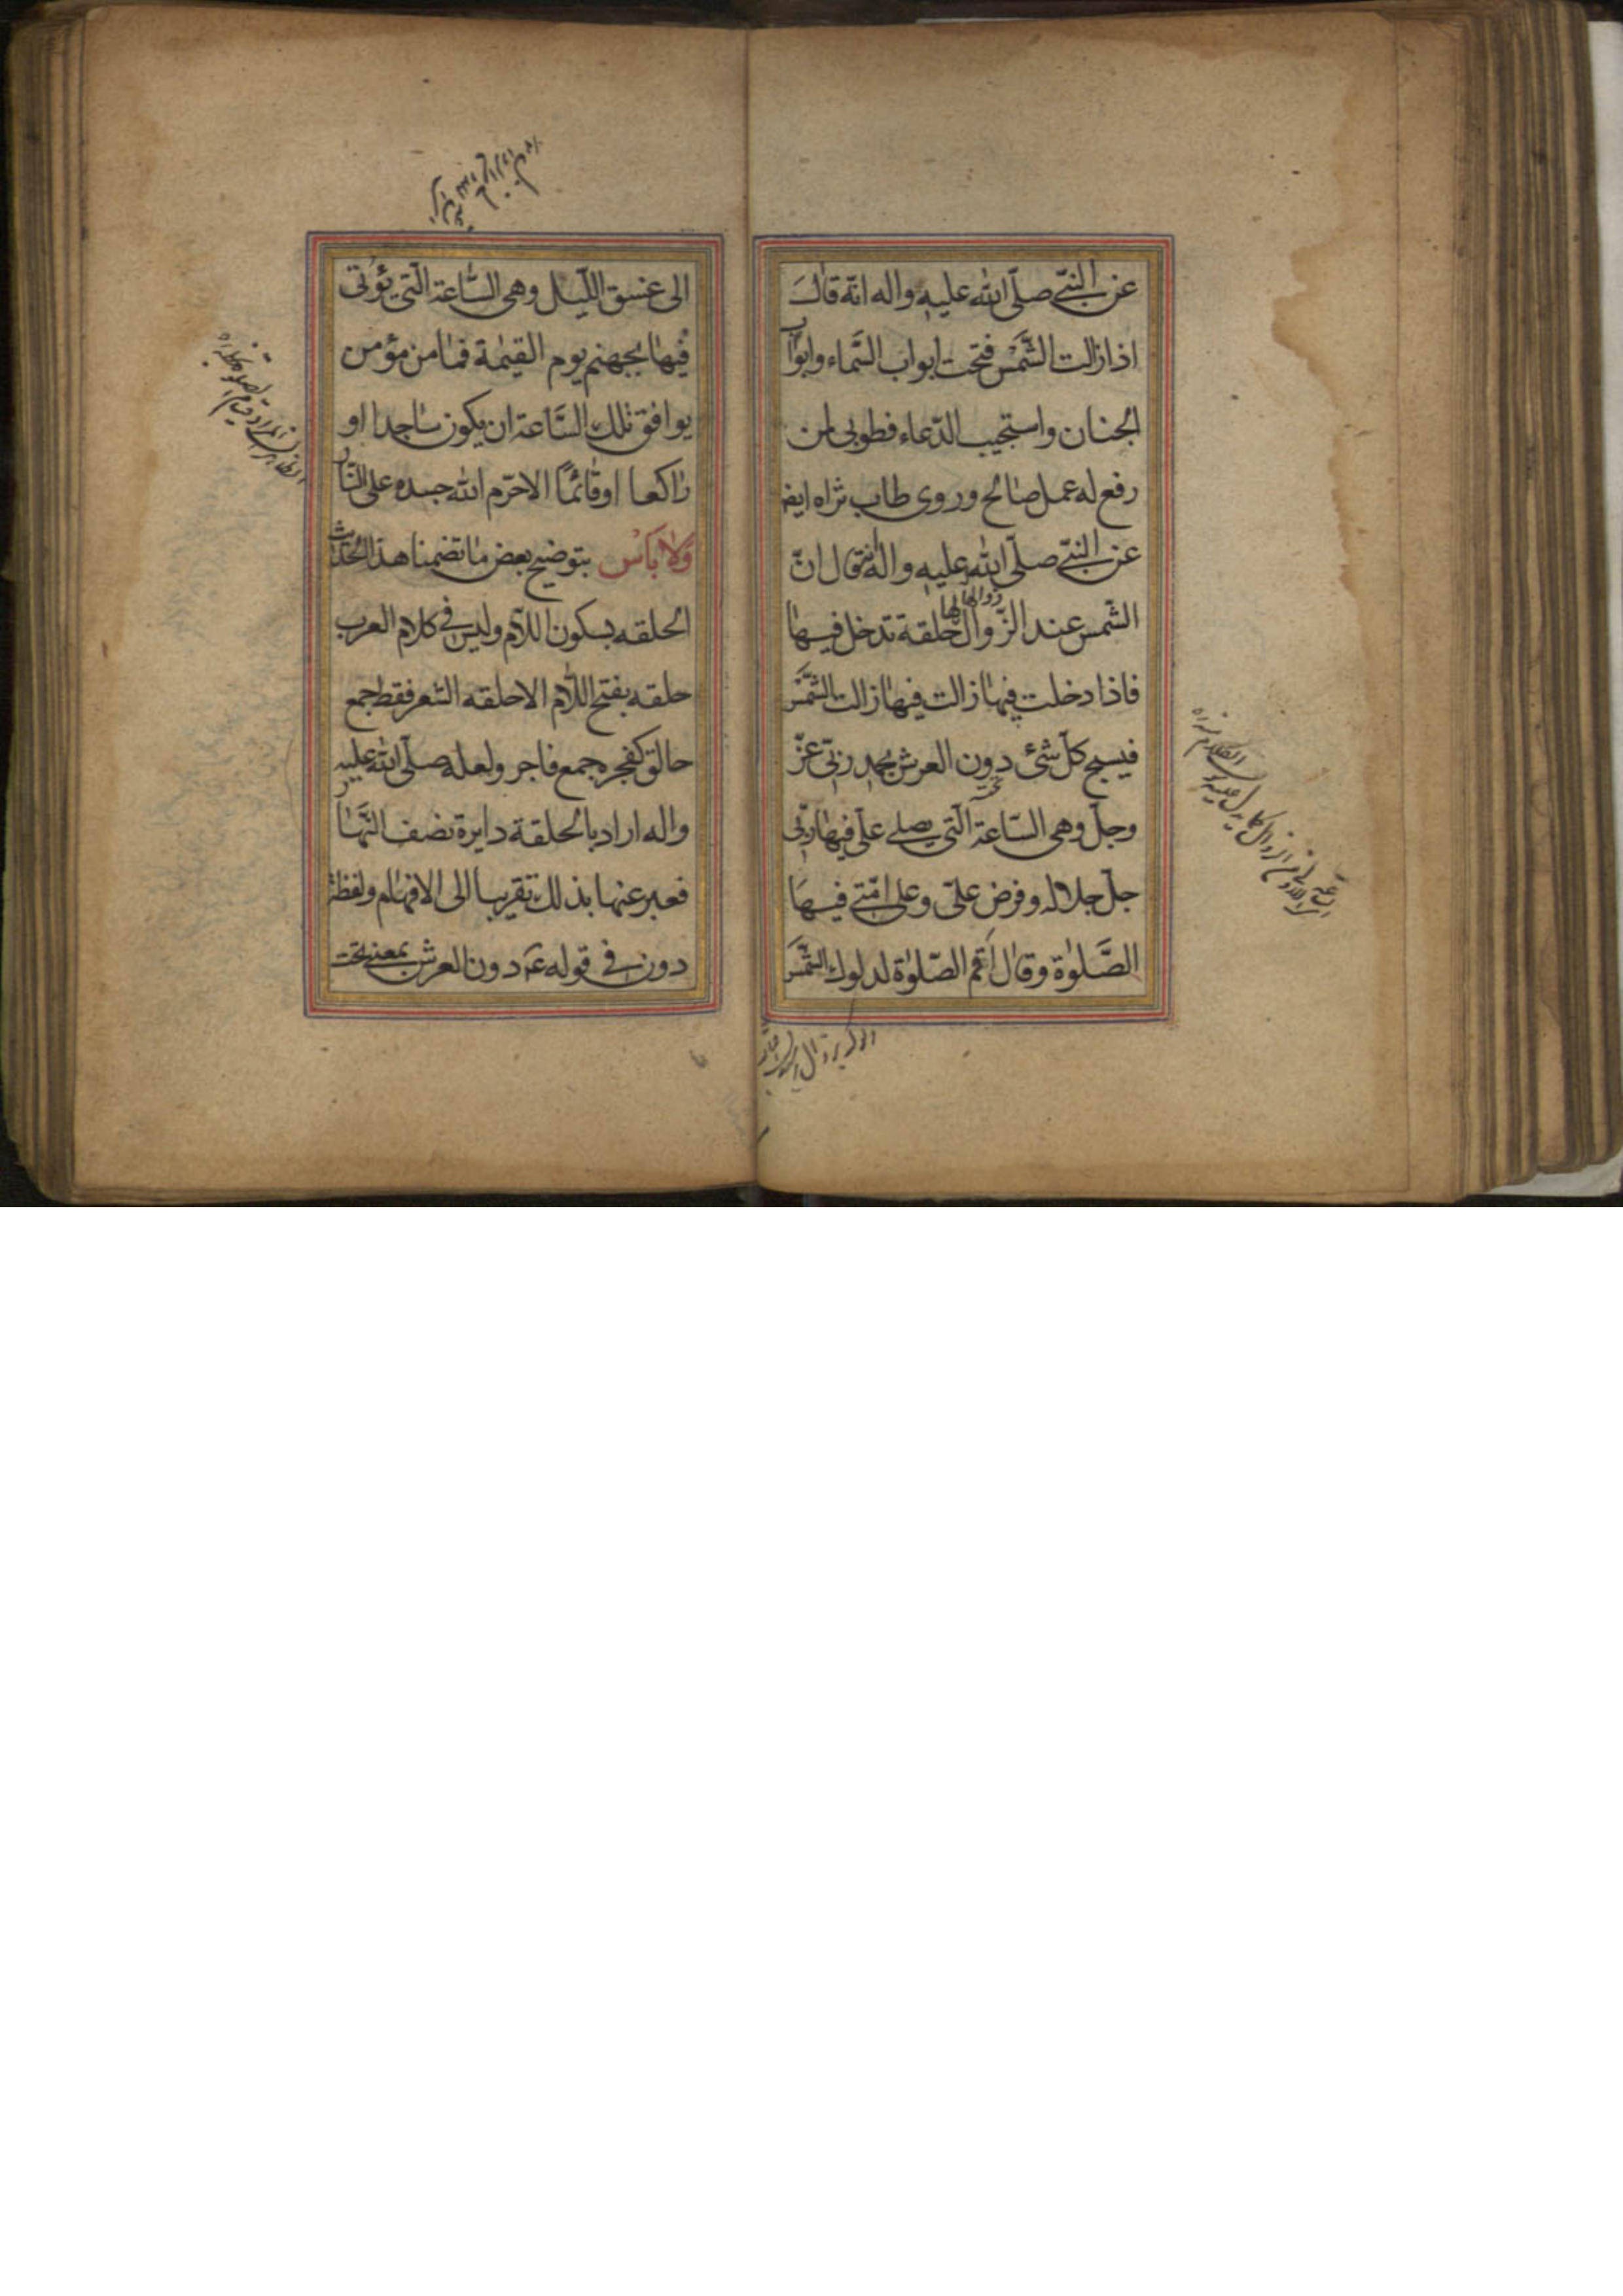 عن النبی صلّی الله علیه واله انّه قال
اذا زالت الشّمس فتحت ابواب السّماء وابواب
الجنان واستجیب الدّعاء فطوبی لمن
رفع له عمل صالح وروی طاب ثراه ایضا
عن النبی صلّی الله علیه واله فقال انّ
الشّمس عند الزّوال لها حلقة تدخل فیها
فاذا دخلت فیها زالت فیها زالت الشّمس
فیسبح کلّ شئ دون العرش بحمد ربّی عزّ
وجلّ وهی السّاعة الّتی یصلے علیّ فیها ربّی
جلّ جلاله وفرض علیّ وعلی امّتے فیها
الصّلوٰة وقال اقم الصّلوٰة لدلوك الشّمس
الی غسق اللّیل وهی السّاعة الّتی یؤتی
فیها بجهنم یوم القیمة فما من مؤمن
یوافق تلك السّاعة ان یکون ساجدا او
راکعا او قائمًا الا حرّم الله جسده علی النّار
ولا بأس بتوضیح بعض ما تضمنا هذا الحدیث
الحلقه بسکون اللّام ولیس فے کلام العرب
حلقه بفتح اللّام الا حلقه الشعر فقط جمع
حالق کفجره جمع فاجر ولعله صلّی الله علیه
واله اراد بالحلقة دایرة نصف النّهار
فعبر عنها بذلك تقریبا الی الافهام ولفظة
دون فے قوله ع دون العرش بمعنی تحت